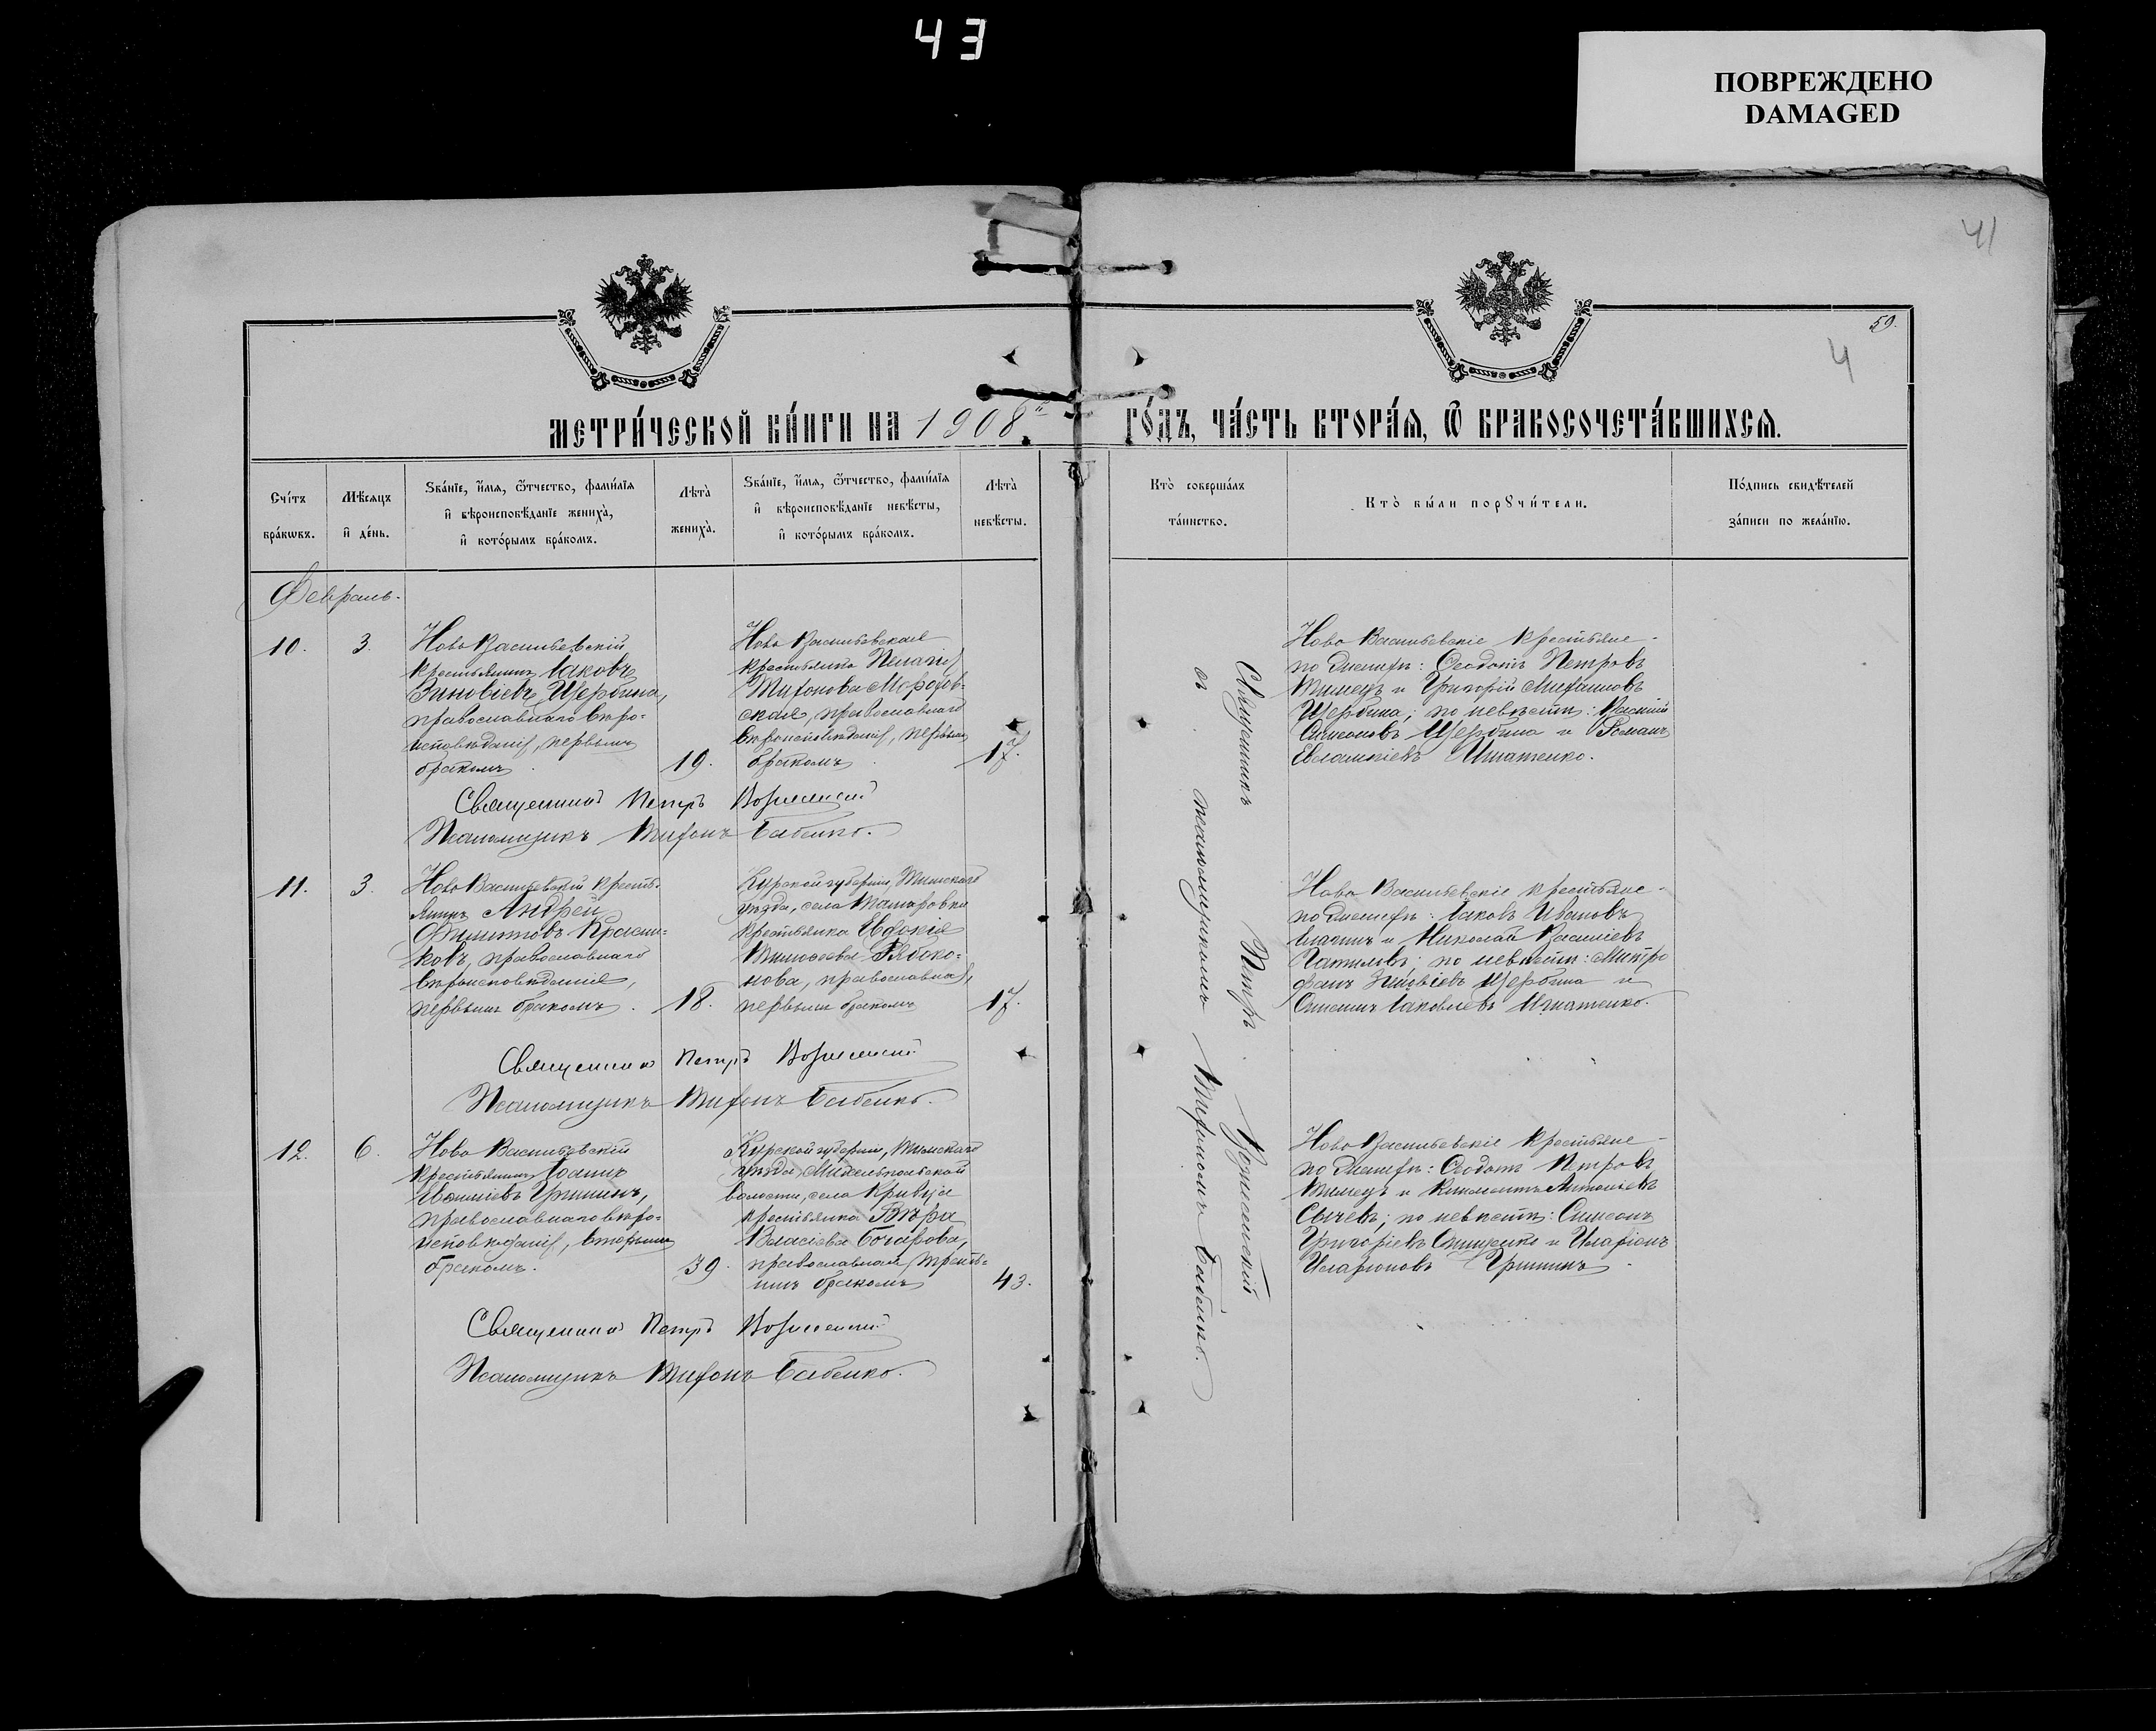 43
ПОВРЕЖДЕНО
DAMAGED
41
59.
4
Метри́ческой кни́ги на 1908й
го́дъ, ча́сть втора́ѧ, ѡ҃ бракосочета́вшихсѧ.
Сче́тъ бра́кѡвъ.
Мѣ́сѧцъ и҆ де́нь.
Ѕва́нїе, и҆́мѧ, ѻ҆́тчество, фами́лїѧ и҆ вѣроисповѣ́данїе жениха̀, и҆ кото́рымъ бра́комъ.
Лѣта̀ жениха̀.
Ѕва́нїе, и҆́мѧ, ѻ҆́тчество, фами́лїѧ и҆ вѣроисповѣ́данїе невѣ́сты, и҆ кото́рымъ бра́комъ.
Лѣта̀ невѣ́сты.
Кто̀ соверша́лъ та́инство.
Кто̀ бы́ли порꙋчи́тели.
По́дпись свидѣ́телей за́писи по жела́нїю.
Февраль.
10.
3.
Ново Васильевскій
крестьянинъ Іаковъ
Зиновіевъ Щербина,
православнаго вѣро-
исповѣданія, первымъ
бракомъ.
19.
Ново Васильевская
крестьянка Пелагія
Тихонова
православнаго
вѣроисповѣданія, первымъ
бракомъ.
17.
Ново Васильевскіе крестьяне
по женихѣ: Ѳеодотъ Петровъ
и Григорій
Щербина; по невѣстѣ: Василій
Симеоновъ Щербина и Романъ
Евлампіевъ Игнатенко.
Священникъ Петръ Вознесенскій
Псаломщикъ Тихонъ Бабенко.
11.
3.
Ново Васильевскій кресть-
янинъ Андрей
Филипповъ
православнаго
вѣроисповѣданія,
первымъ бракомъ.
18.
Курской губерніи, Тимскаго
уѣзда, села
крестьянка Евдокія
Тимоѳеева Рябоко-
нова, православная,
первымъ бракомъ
17.
Ново Васильевскіе крестьяне
по женихѣ: Іаковъ Ивановъ
и Николай Василіевъ
по невѣстѣ: Митро
фанъ Зиновіевъ Щербина и
Симеонъ Іаковлевъ Игнатенко.
Священникъ Петръ Вознесенскій
Псаломщикъ Тихонъ Бабенко.
12.
6.
Ново Васильевскій
крестьянинъ Іоаннъ
Гришинъ,
православнаго вѣро-
исповѣданія, вторымъ
бракомъ.
39.
Курской губерніи, Тимскаго
уѣзда, Михельпольской
волости, села
крестьянка Вѣра
Власіева Бочарова,
православная, треть-
имъ бракомъ
43.
Ново Васильевскіе крестьяне
по женихѣ: Ѳеодотъ Петровъ
и Климентъ Антоніевъ
Сычевъ; по невѣстѣ: Симеонъ
Григоріевъ Онищенко и Иларіонъ
Иларіоновъ Гришинъ.
Священникъ Петръ Вознесенскій
Псаломщикъ Тихонъ Бабенко.
Священникъ Петръ Вознесенскій
съ псаломщикомъ Тихономъ Бабенко.